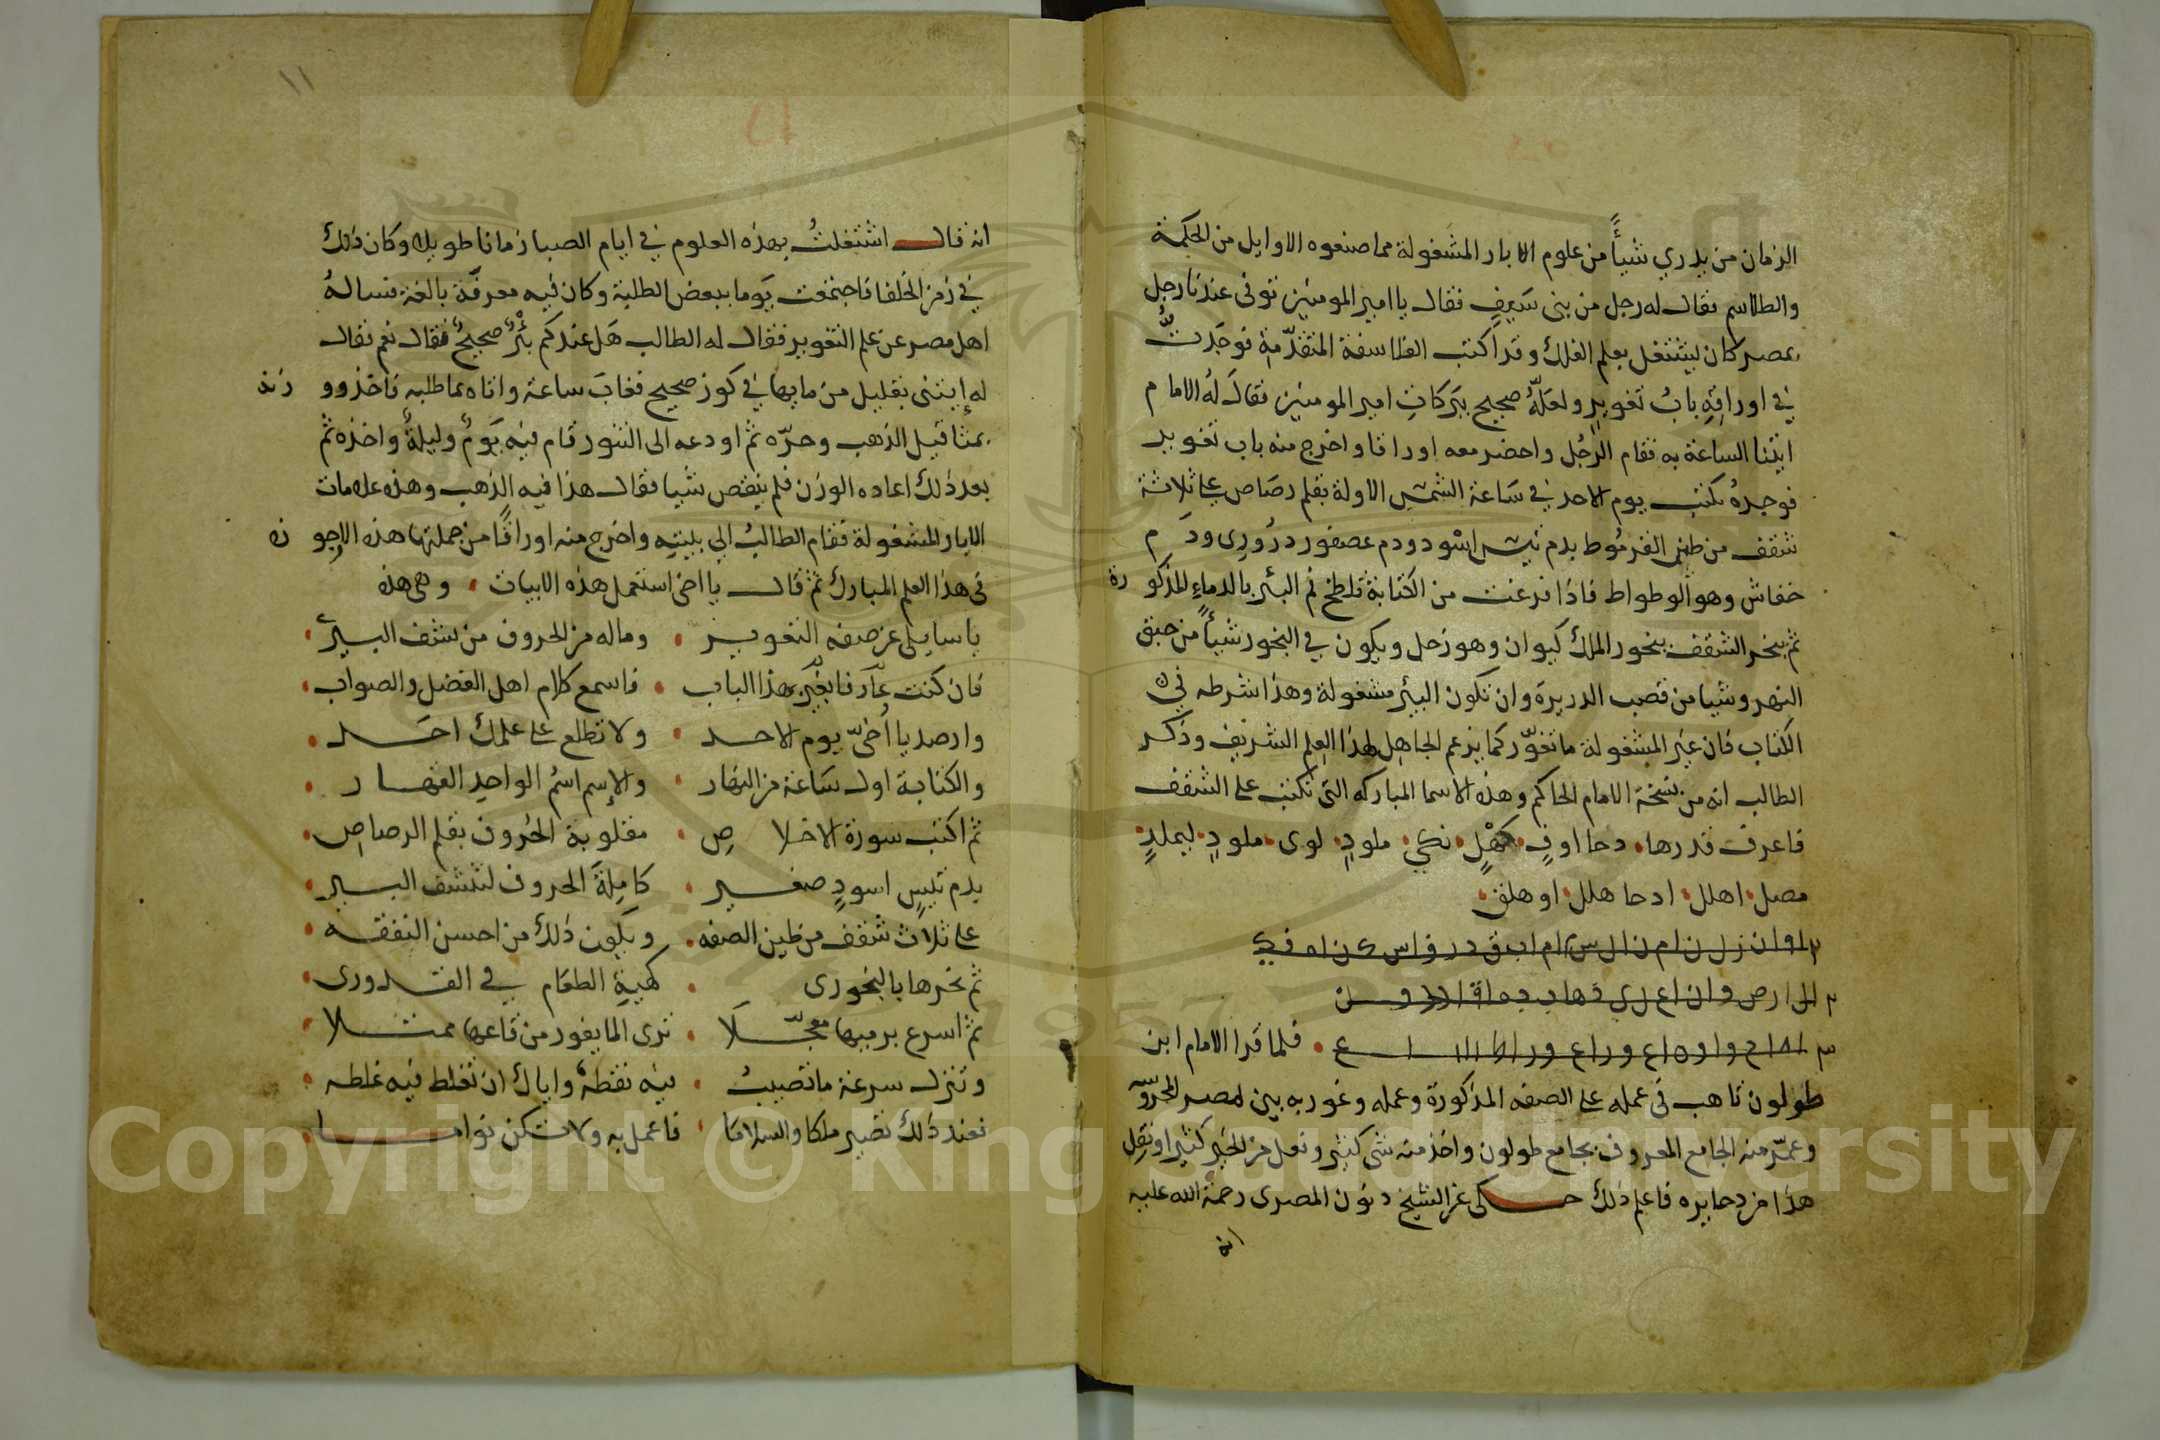 الزمان من يدري شيأً من علوم الابار المشغولة مما صنعوه الاوايل من الحكمة
والطلاسم فقال له رجل من بنى سَيفٍ فقال يا امير المومنين توفى عندنا رجل
بمصر كان يشتغل بعلم الفلك وقد كتب الفلاسفة المتقدّمةِ فوجَدتُّ
في اوراقِهِ بابُ تغويرٍ ولعلّهُ صحيح ببَركاتِ امير المومنين فقالَ لهُ الامام
ايتنا الساعة به فقام الرجُل واحضر معه اوراقا واخرج منه باب تغوير
فوجدهُ يكتب يوم الاحد في سَاعة الشمس الاولة بقلم رصَاص على ثلاثة
شقف من طين الفرمُوط بدم تيس اسْود ودم عصفور درُورى ودم
خفاش وهو الوطواط فاذا فرغت من الكتابة تلطخ فم البئر بالدماءِ المذكورة
ثم بخر الشقف ببخور الملك كيوان وهو زحل ويكون في البخور شيأً من حبق
النهر وشيا من قصب الدريرة وان تكون البئر مشغولة وهذا شرطه في
الكتاب فان غير المشغولة ما تغوّر كما يزعم الجاهل لهذا العِلم الشريف وذكر
الطالب انه من نسخة الامام الحاكم وهذه الاسما المباركه التى تكتب على الشقف
فاعرف قدرها. دحا اوفٍ. كَهْلٍ. نكي. ملودٍ. لوى. ملودٍ. ليملدٍ.
مصل. اهلل. ادحا هلل. اوهلق.
فلما قرا الامام ابن
طولون تاهب فى عمله على الصفه المذكورة وعمله وغور به بير بمصر المحروسّه
وعمّر منه الجامع المعروف بجامع طولون واخذ منه شى كثير وفعل من الخير كثيرا ونقل
هذا من دحايره فاعلم ذلك حكى عن الشيخ دنون المصرى رحمة الله عليه
انه
١١
انه قال اشتغلتُ بهذه العلوم في ايام الصبا زمانا طويلا وكان ذلك
في زمن الخلفا فاجتمَعت يَوما ببعض الطلبة وكان فيه معرفَة بالغة فسالهُ
اهل مصر عن علم التغوير فقال له الطالب هَل عندكم بئرٌ صحيحٌ فقال نعم فقال
له إيتنى بقليل من مايها في كوز صحيح فغابَ ساعة واتاه بما طلبه فاخذ ووزنه
بمثاقيل الذهب وحرّه ثم اودعه الى التنور قام فيه يَومٌ وليلةٌ واخذه ثم
بعد ذلك اعاده الوزن فلم ينقص شيا فقال هذا فيه الذهب وهذه علامات
الابار المشغولة فقام الطالبُ الى بيتِه واخرج منه اوراقًا من جملتها هذه الارجوزه
فى هذا العلم المبارك ثم قال يا اخى استعمل هذه الابيات . وهى هذه
يا سايلى عن صفه التغوير . وماله من الحروف من نشف البير .
فان كنت عارفا بغير هذا الباب . فاسمع كلام اهل الفضل والصواب .
وارصد يا اُخىّ يوم الاحد . ولا تطلع على علمك احَد .
والكتابة اول سَاعة من النهار . والإسم اسمُ الواحدِ القهار .
ثم اكتب سورة الاخلاصِ . مقلوبة الحُروف بقلم الرصاصِ .
بدم تيسٍ اسودٍ صغير . كامِلةَ الحروف لتنشف البير
على ثلاث شقف من طين الصفه . ويكون ذلك من احسن النفقه .
ثم بخرها بالبخورى . كهيةِ الطعَام في القدورى .
ثم اسرع برميها معجّلَا . ترى الما يغور من قاعها ممتثلا .
وتنزل سرعة ما تصيبُ . فيه نقطهٌ واياك ان تغلط فيه غلطه .
فعند ذلك تصير ملكا والسلامَا . فاعمل به ولا تكن نواما .
Copyright © King Saud University
1957